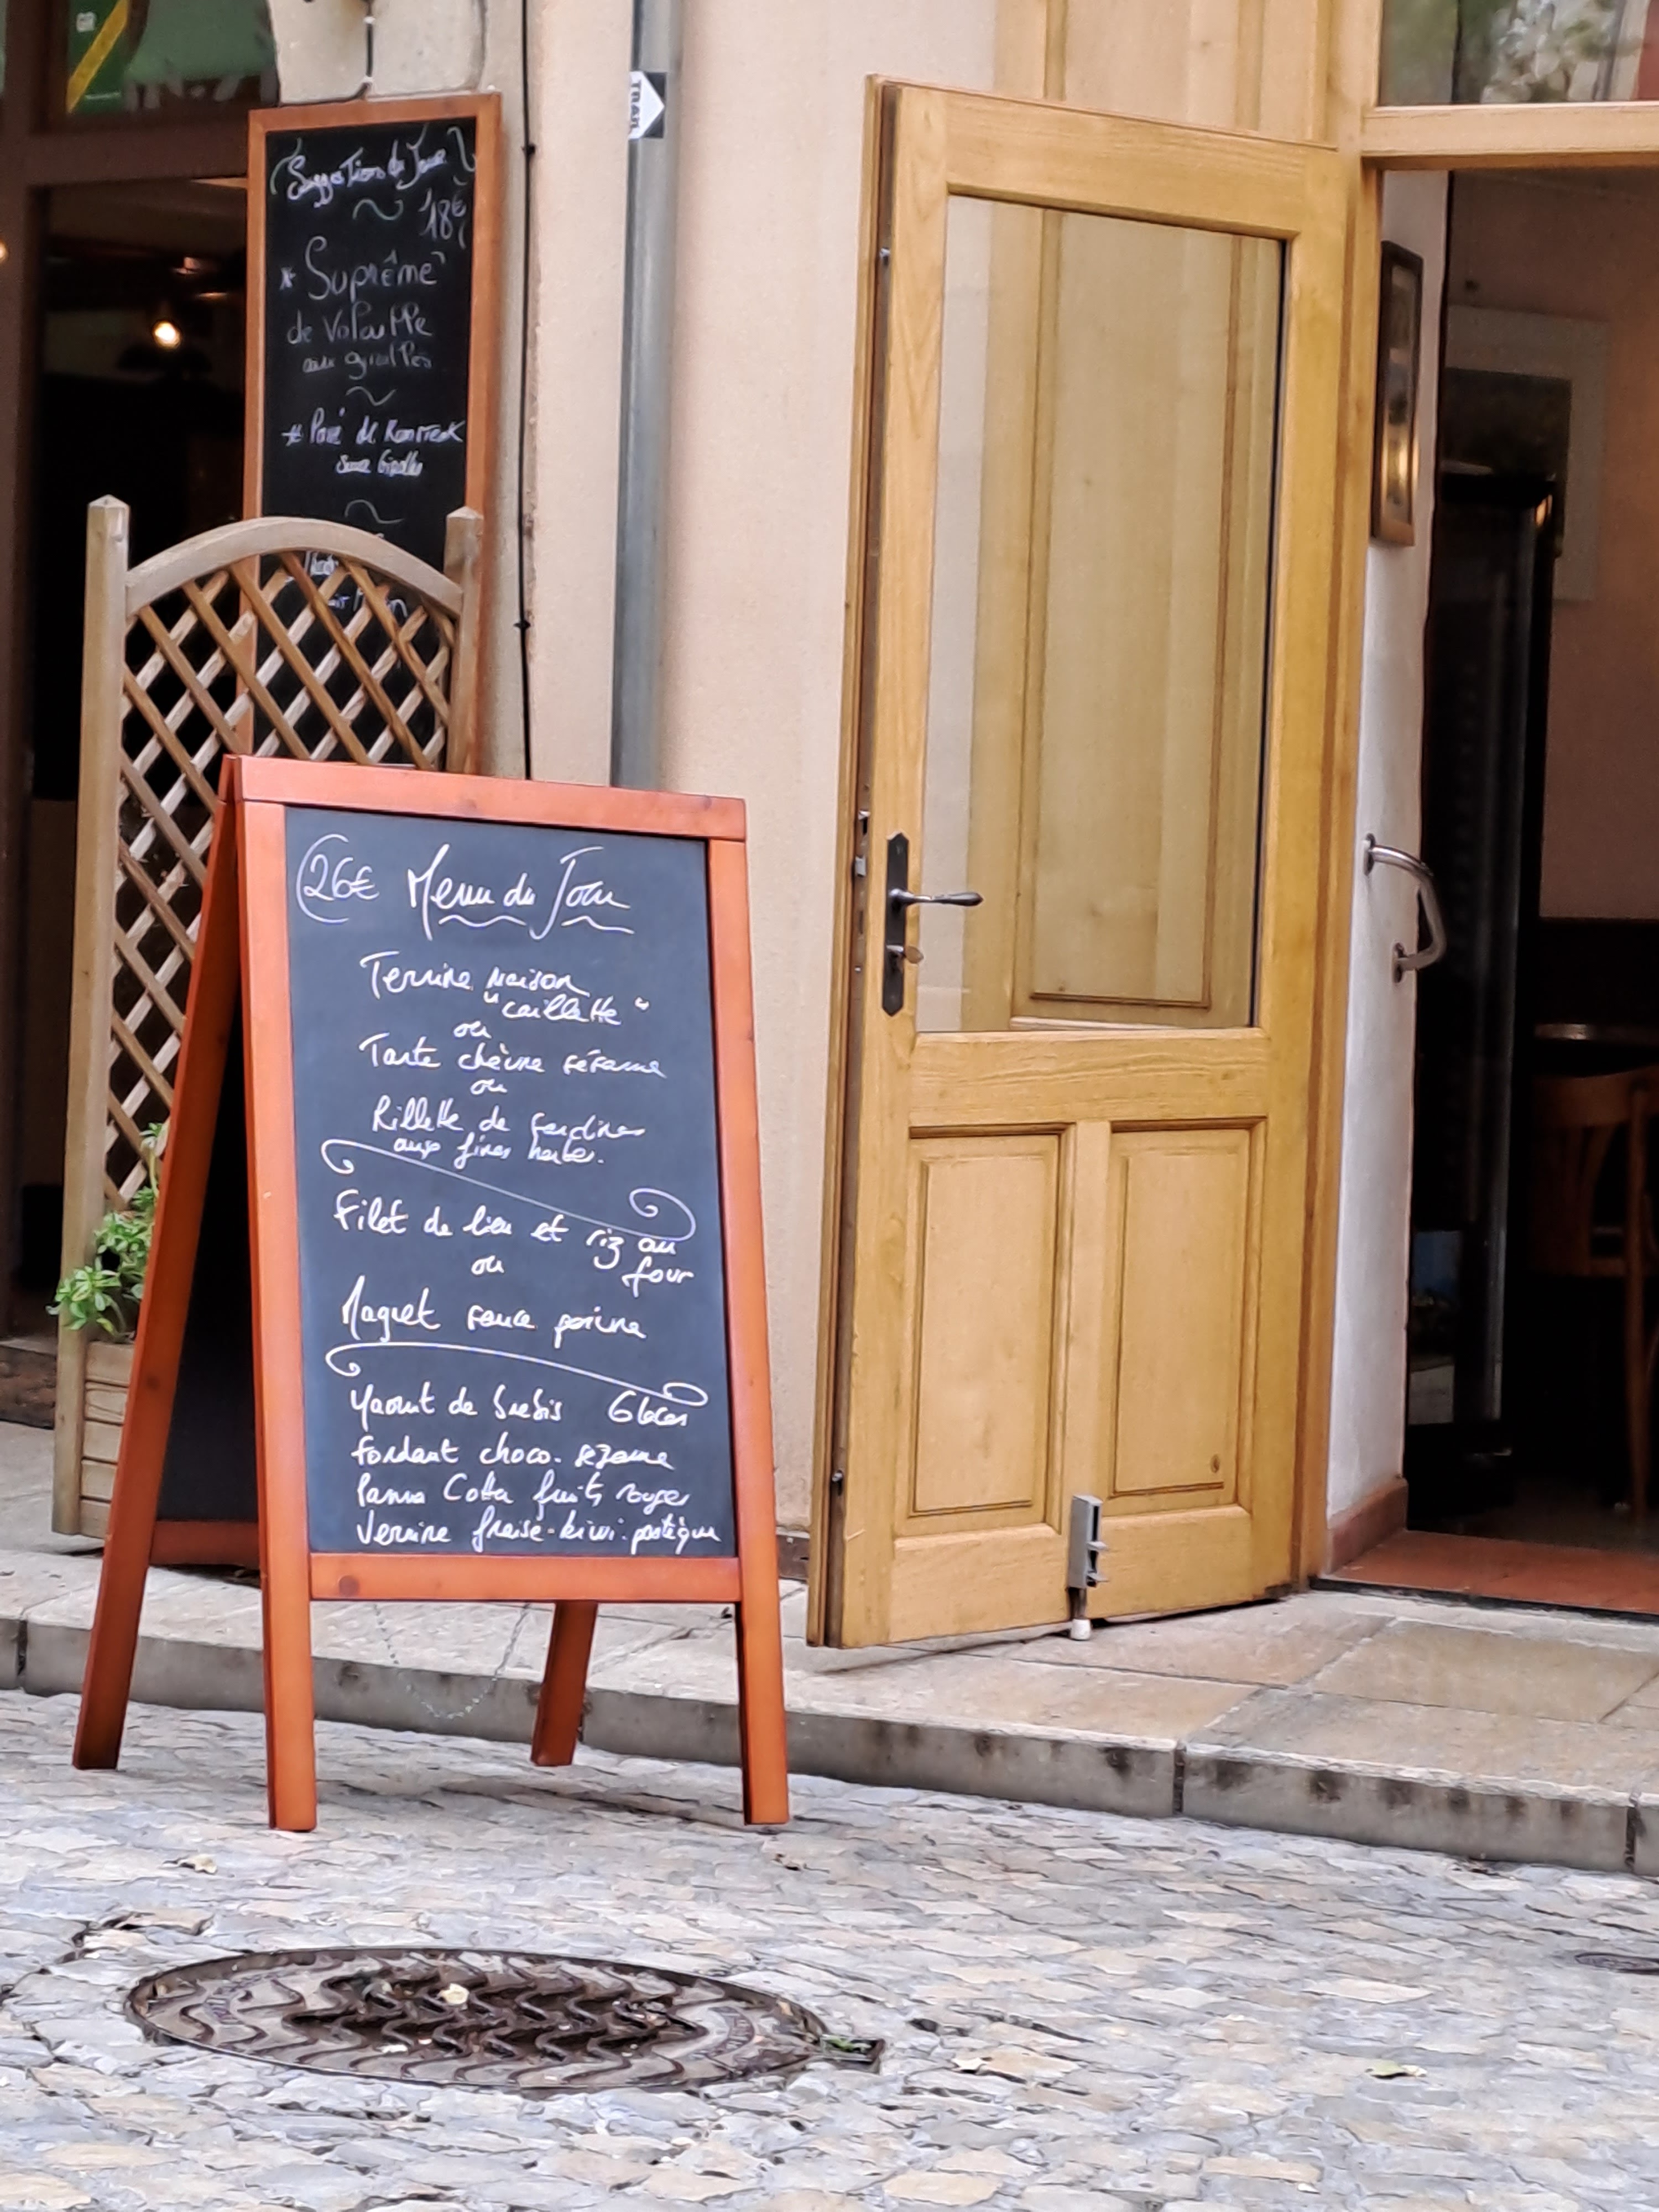 GR
Suggestions du Jour
18€
* Suprême
de Volaille
aux girolles
* Pavé de Rumsteak
sauce Girolles
26€ Menu du Jour
Terrine maison
"caillette"
ou
Tarte chèvre sésame
ou
Rillette de sardines
aux fines herbes.
Filet de lieu et riz au
four
ou
Magret sauce porine
Yaourt de brebis Glaces
fondant choco. sezame
Panna Cotta fruits rouges
Verrine fraise-kiwi-pastèque